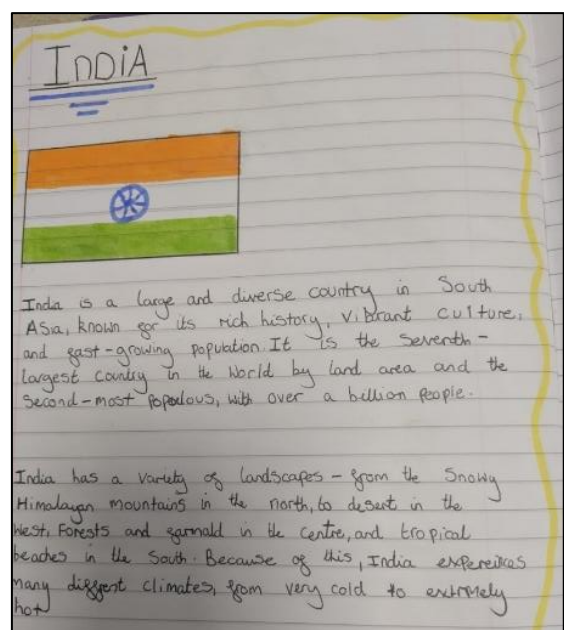 InDiA
India is a large and diverse country in South
Asia, known for its rich history, vibrant culture,
and fast-growing population. It is the seventh-
largest country in the world by land area and the
second-most populous, with over a billion people.
India has a variety of landscapes - from the snowy
Himalayan mountains in the north, to desert in the
west, Forests and farmald in the centre, and tropical
beaches in the South. Because of this, India expereinces
many diffrent climates, from very cold to extrmely
hot